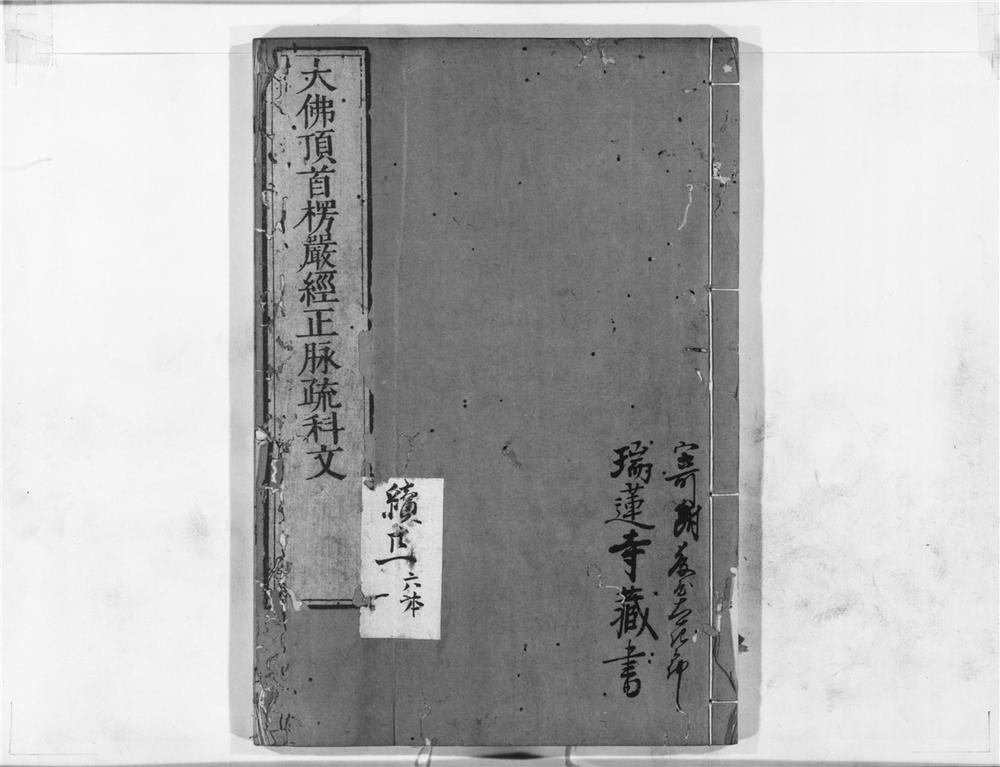 寄附
瑞蓮寺藏書
六本
續
大佛頂首楞嚴經正脉疏科文